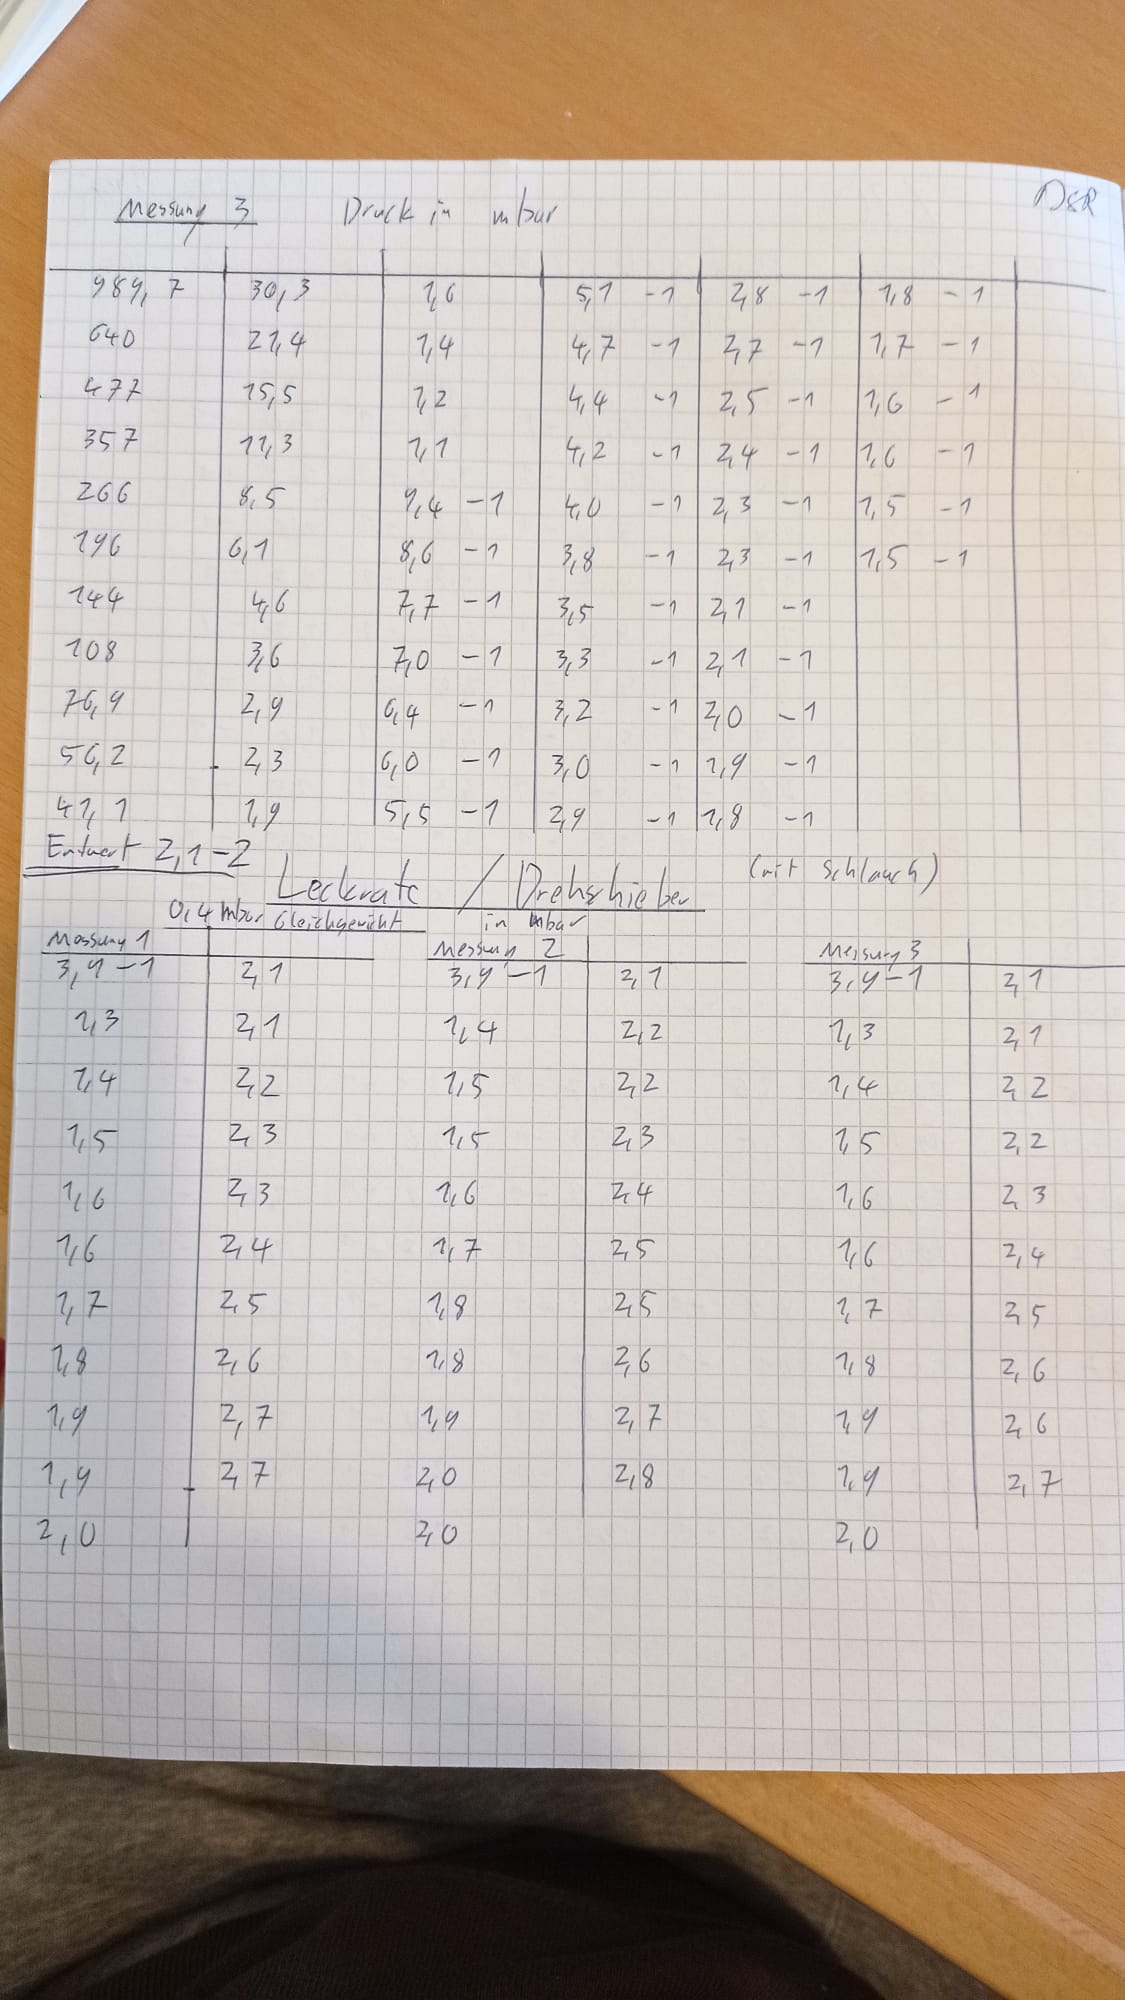 Messung 3 Druck in mbar
989,7 30,3 1,6 5,1 -1 2,8 -1 1,8 -1
640 21,4 1,4 4,7 -1 2,7 -1 1,7 -1
477 15,5 1,2 4,4 -1 2,5 -1 1,6 -1
357 11,3 1,1 4,2 -1 2,4 -1 1,6 -1
266 8,5 9,4 -1 4,0 -1 2,3 -1 1,5 -1
196 6,1 8,6 -1 3,8 -1 2,3 -1 1,5 -1
144 4,6 7,7 -1 3,5 -1 2,1 -1
108 3,6 7,0 -1 3,3 -1 2,1 -1
76,9 2,9 6,4 -1 3,2 -1 2,0 -1
56,2 2,3 6,0 -1 3,0 -1 1,9 -1
41,1 1,9 5,5 -1 2,9 -1 1,8 -1
Entwert 2,1 -2
Leckrate / Drehschieber (mit Schlauch)
0,4 mbar Gleichgewicht in mbar
Messung 1 Messung 2 Messung 3
3,9 -1 2,1 3,9 -1 2,1 3,9 -1 2,1
1,3 2,1 1,4 2,2 1,3 2,1
1,4 2,2 1,5 2,2 1,4 2,2
1,5 2,3 1,5 2,3 1,5 2,2
1,6 2,3 1,6 2,4 1,6 2,3
1,6 2,4 1,7 2,5 1,6 2,4
1,7 2,5 1,8 2,5 1,7 2,5
1,8 2,6 1,8 2,6 1,8 2,6
1,9 2,7 1,9 2,7 1,9 2,6
1,9 2,7 2,0 2,8 1,9 2,7
2,0 2,0 2,0